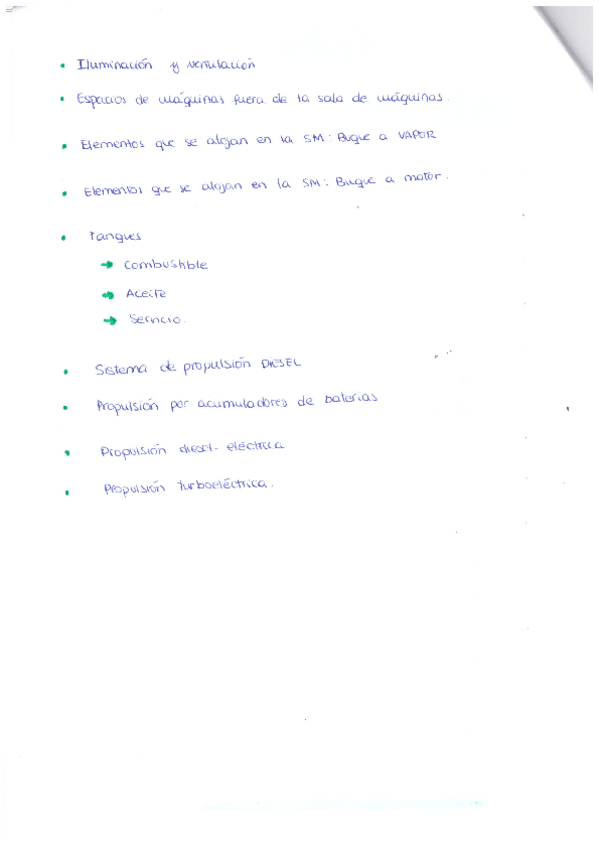 • Iluminación y ventilación
• Espacios de máquinas fuera de la sala de máquinas.
• Elementos que se alojan en la SM: Buque a VAPOR
• Elementos que se alojan en la SM: Buque a motor.
• Tanques
→ Combustible
→ Aceite
→ Servicio.
• Sistema de propulsión DIESEL
• Propulsión por acumuladores de baterias
• Propulsión diesel-eléctrica
• Propulsión turboeléctrica.